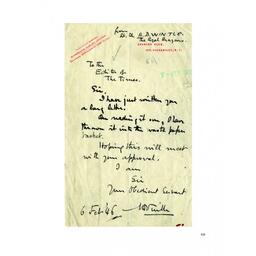 from
Lt. Col. A.D. WINTLE.
The Royal Dragoons
CAVALRY CLUB,
127, PICCADILLY, W.1.
To the
Editor of
The Times.
Sir,
I have just written you
a long letter.
On reading it over, I have
thrown it into the waste paper
basket.
Hoping this will meet
with your approval,
I am
Sir
Your Obedient Servant
6 Feb '46